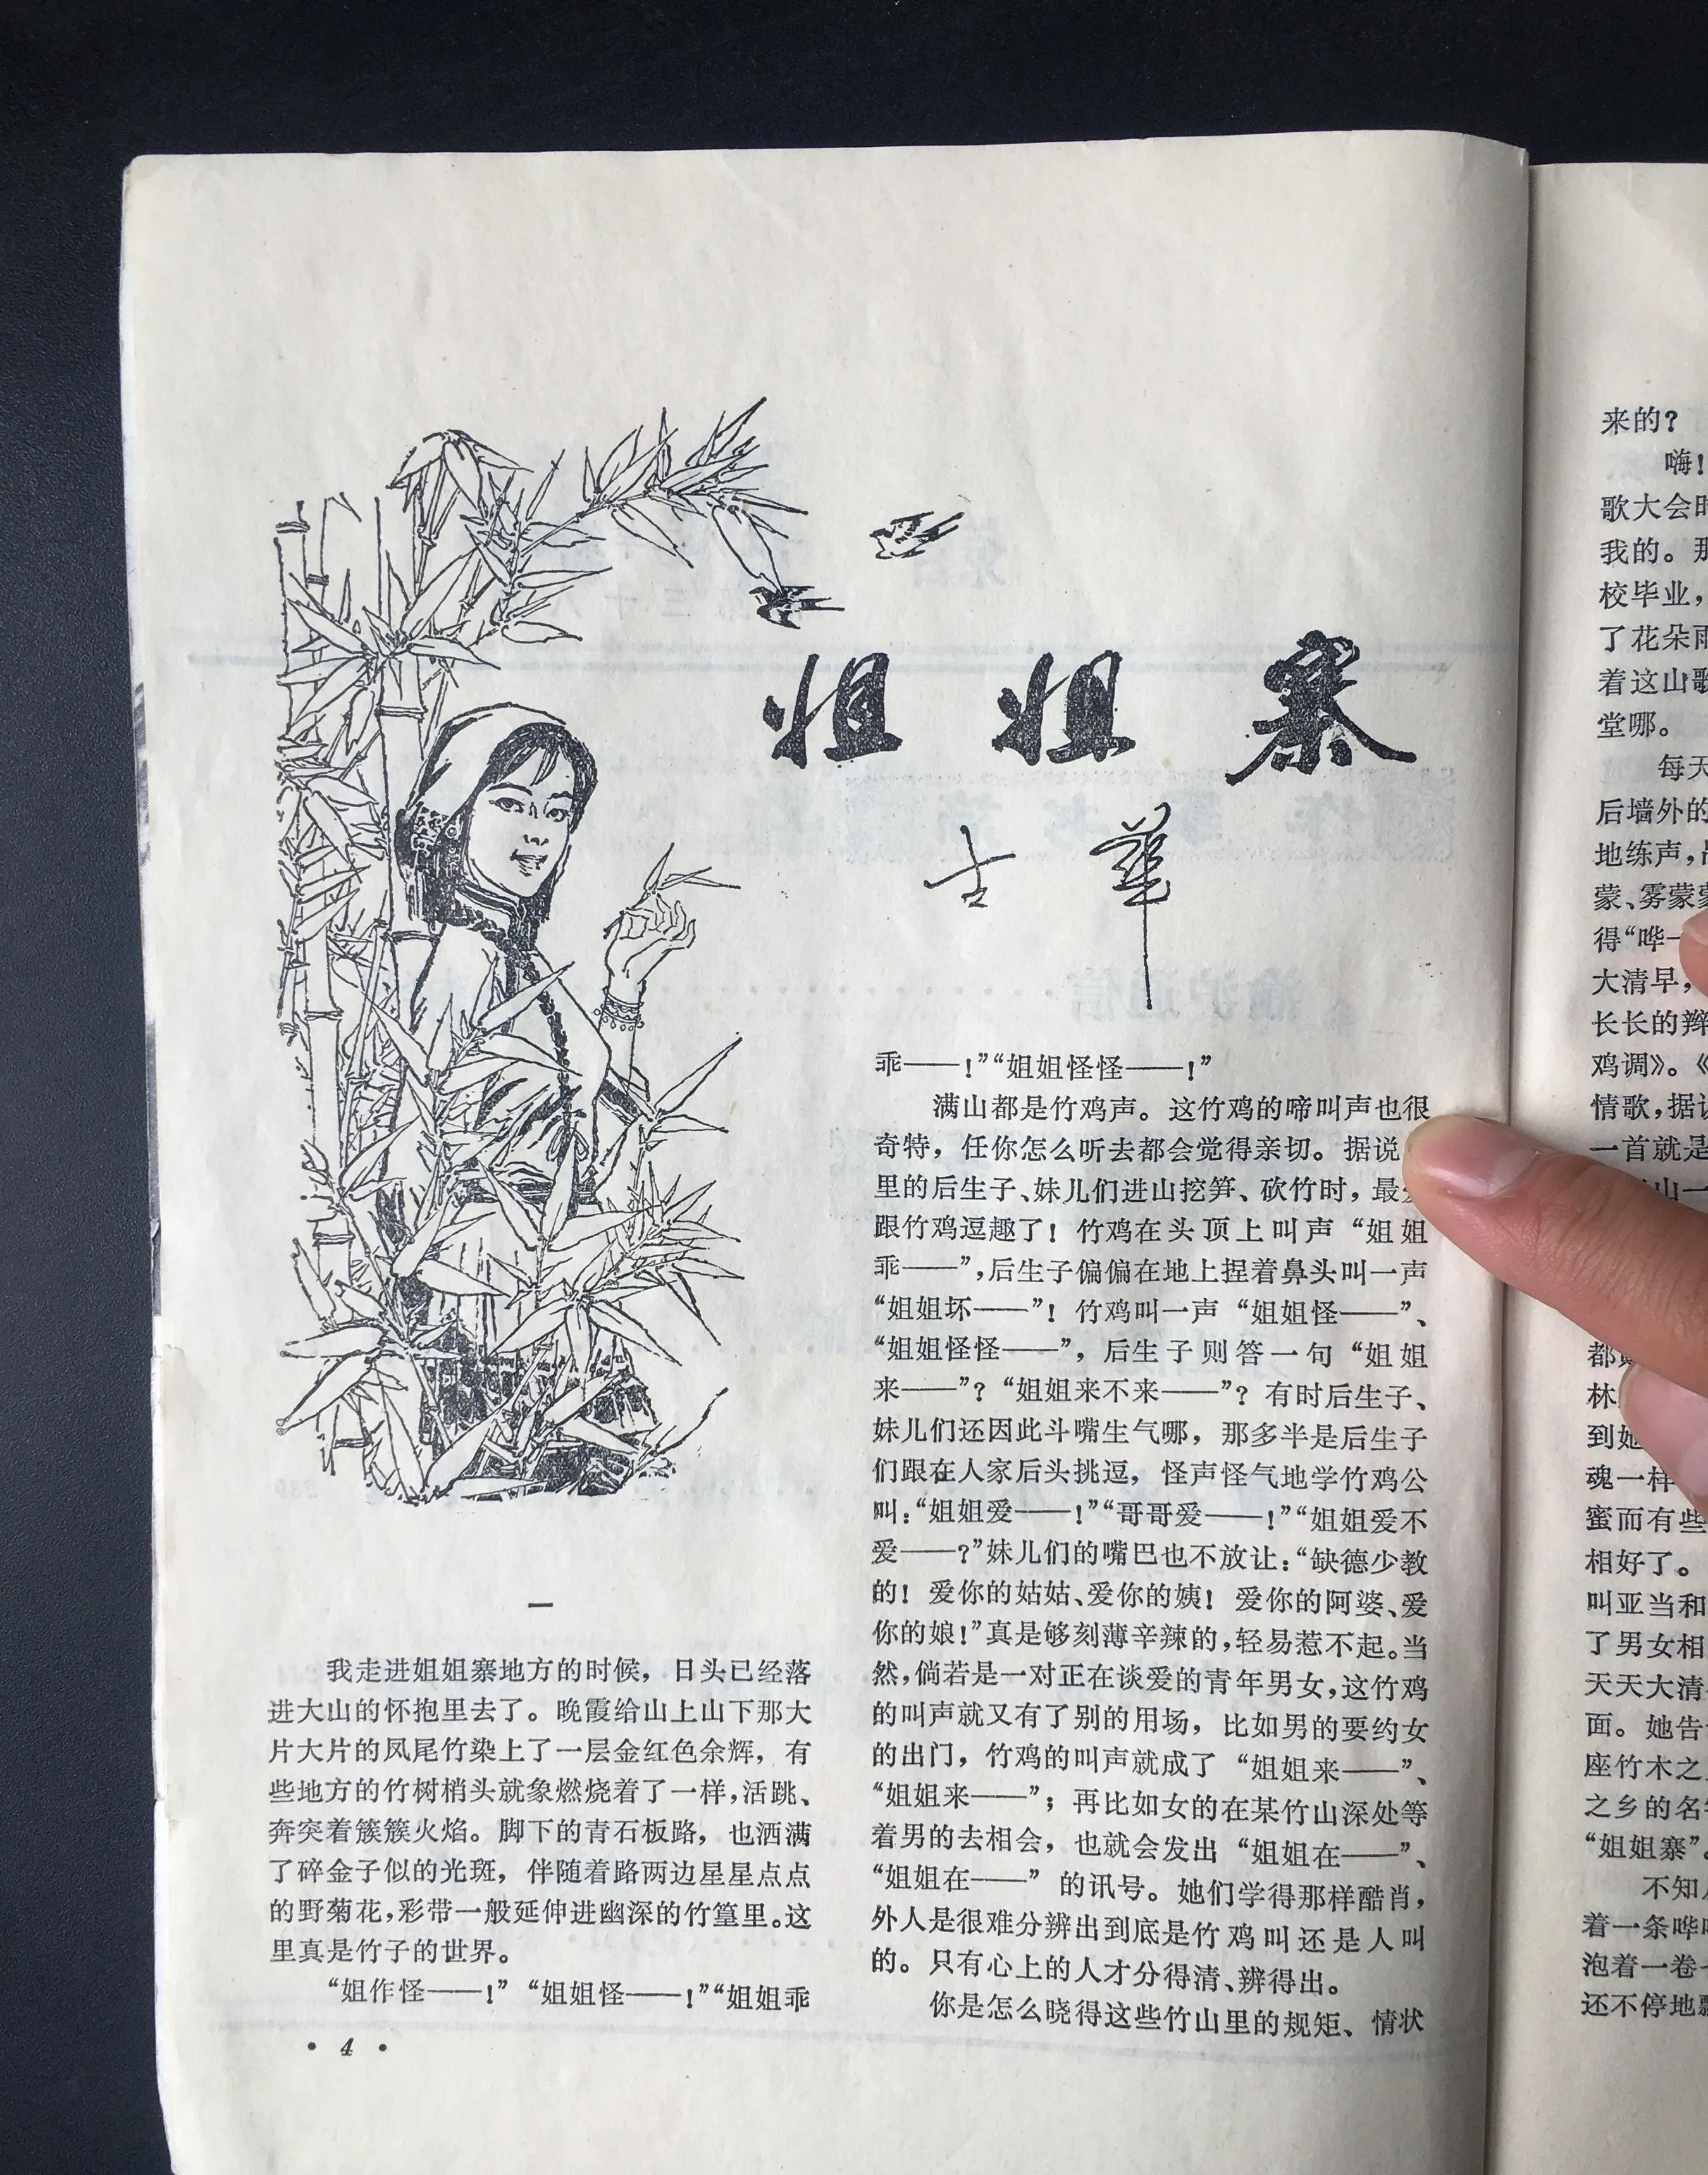 姐姐寨
古華
一
我走进姐姐寨地方的时候，日头已经落
进大山的怀抱里去了。晚霞给山上山下那大
片大片的凤尾竹染上了一层金红色余辉，有
些地方的竹树梢头就象燃烧着了一样，活跳、
奔突着簇簇火焰。脚下的青石板路，也洒满
了碎金子似的光斑，伴随着路两边星星点点
的野菊花，彩带一般延伸进幽深的竹篁里。这
里真是竹子的世界。
“姐作怪——！”“姐姐怪——！”“姐姐乖
乖——！”“姐姐怪怪——！”
满山都是竹鸡声。这竹鸡的啼叫声也很
奇特，任你怎么听去都会觉得亲切。据说
里的后生子、妹儿们进山挖笋、砍竹时，最
跟竹鸡逗趣了！竹鸡在头顶上叫声“姐姐
乖——”，后生子偏偏在地上捏着鼻头叫一声
“姐姐坏——”！竹鸡叫一声“姐姐怪——”、
“姐姐怪怪——”，后生子则答一句“姐姐
来——”？“姐姐来不来——”？有时后生子、
妹儿们还因此斗嘴生气哪，那多半是后生子
们跟在人家后头挑逗，怪声怪气地学竹鸡公
叫：“姐姐爱——！”“哥哥爱——！”“姐姐爱不
爱——？”妹儿们的嘴巴也不放让：“缺德少教
的！爱你的姑姑、爱你的姨！爱你的阿婆、爱
你的娘！”真是够刻薄辛辣的，轻易惹不起。当
然，倘若是一对正在谈爱的青年男女，这竹鸡
的叫声就又有了别的用场，比如男的要约女
的出门，竹鸡的叫声就成了“姐姐来——”、
“姐姐来——”；再比如女的在某竹山深处等
着男的去相会，也就会发出“姐姐在——”、
“姐姐在——”的讯号。她们学得那样酷肖，
外人是很难分辨出到底是竹鸡叫还是人叫
的。只有心上的人才分得清、辨得出。
你是怎么晓得这些竹山里的规矩、情状
· 4 ·
来的？
嗨！
歌大会时
我的。那
校毕业，
了花朵雨
着这山歌
堂哪。
每天
后墙外的
地练声，
蒙、雾蒙蒙
得“哗一
大清早，
长长的辫
鸡调》。《
情歌，据说
一首就是
山一
都
林
到她
魂一样
蜜而有些
相好了。
叫亚当和
了男女相
天天大清
面。她告
座竹木之
之乡的名
“姐姐寨”。
不知
着一条哗
泡着一卷
还不停地